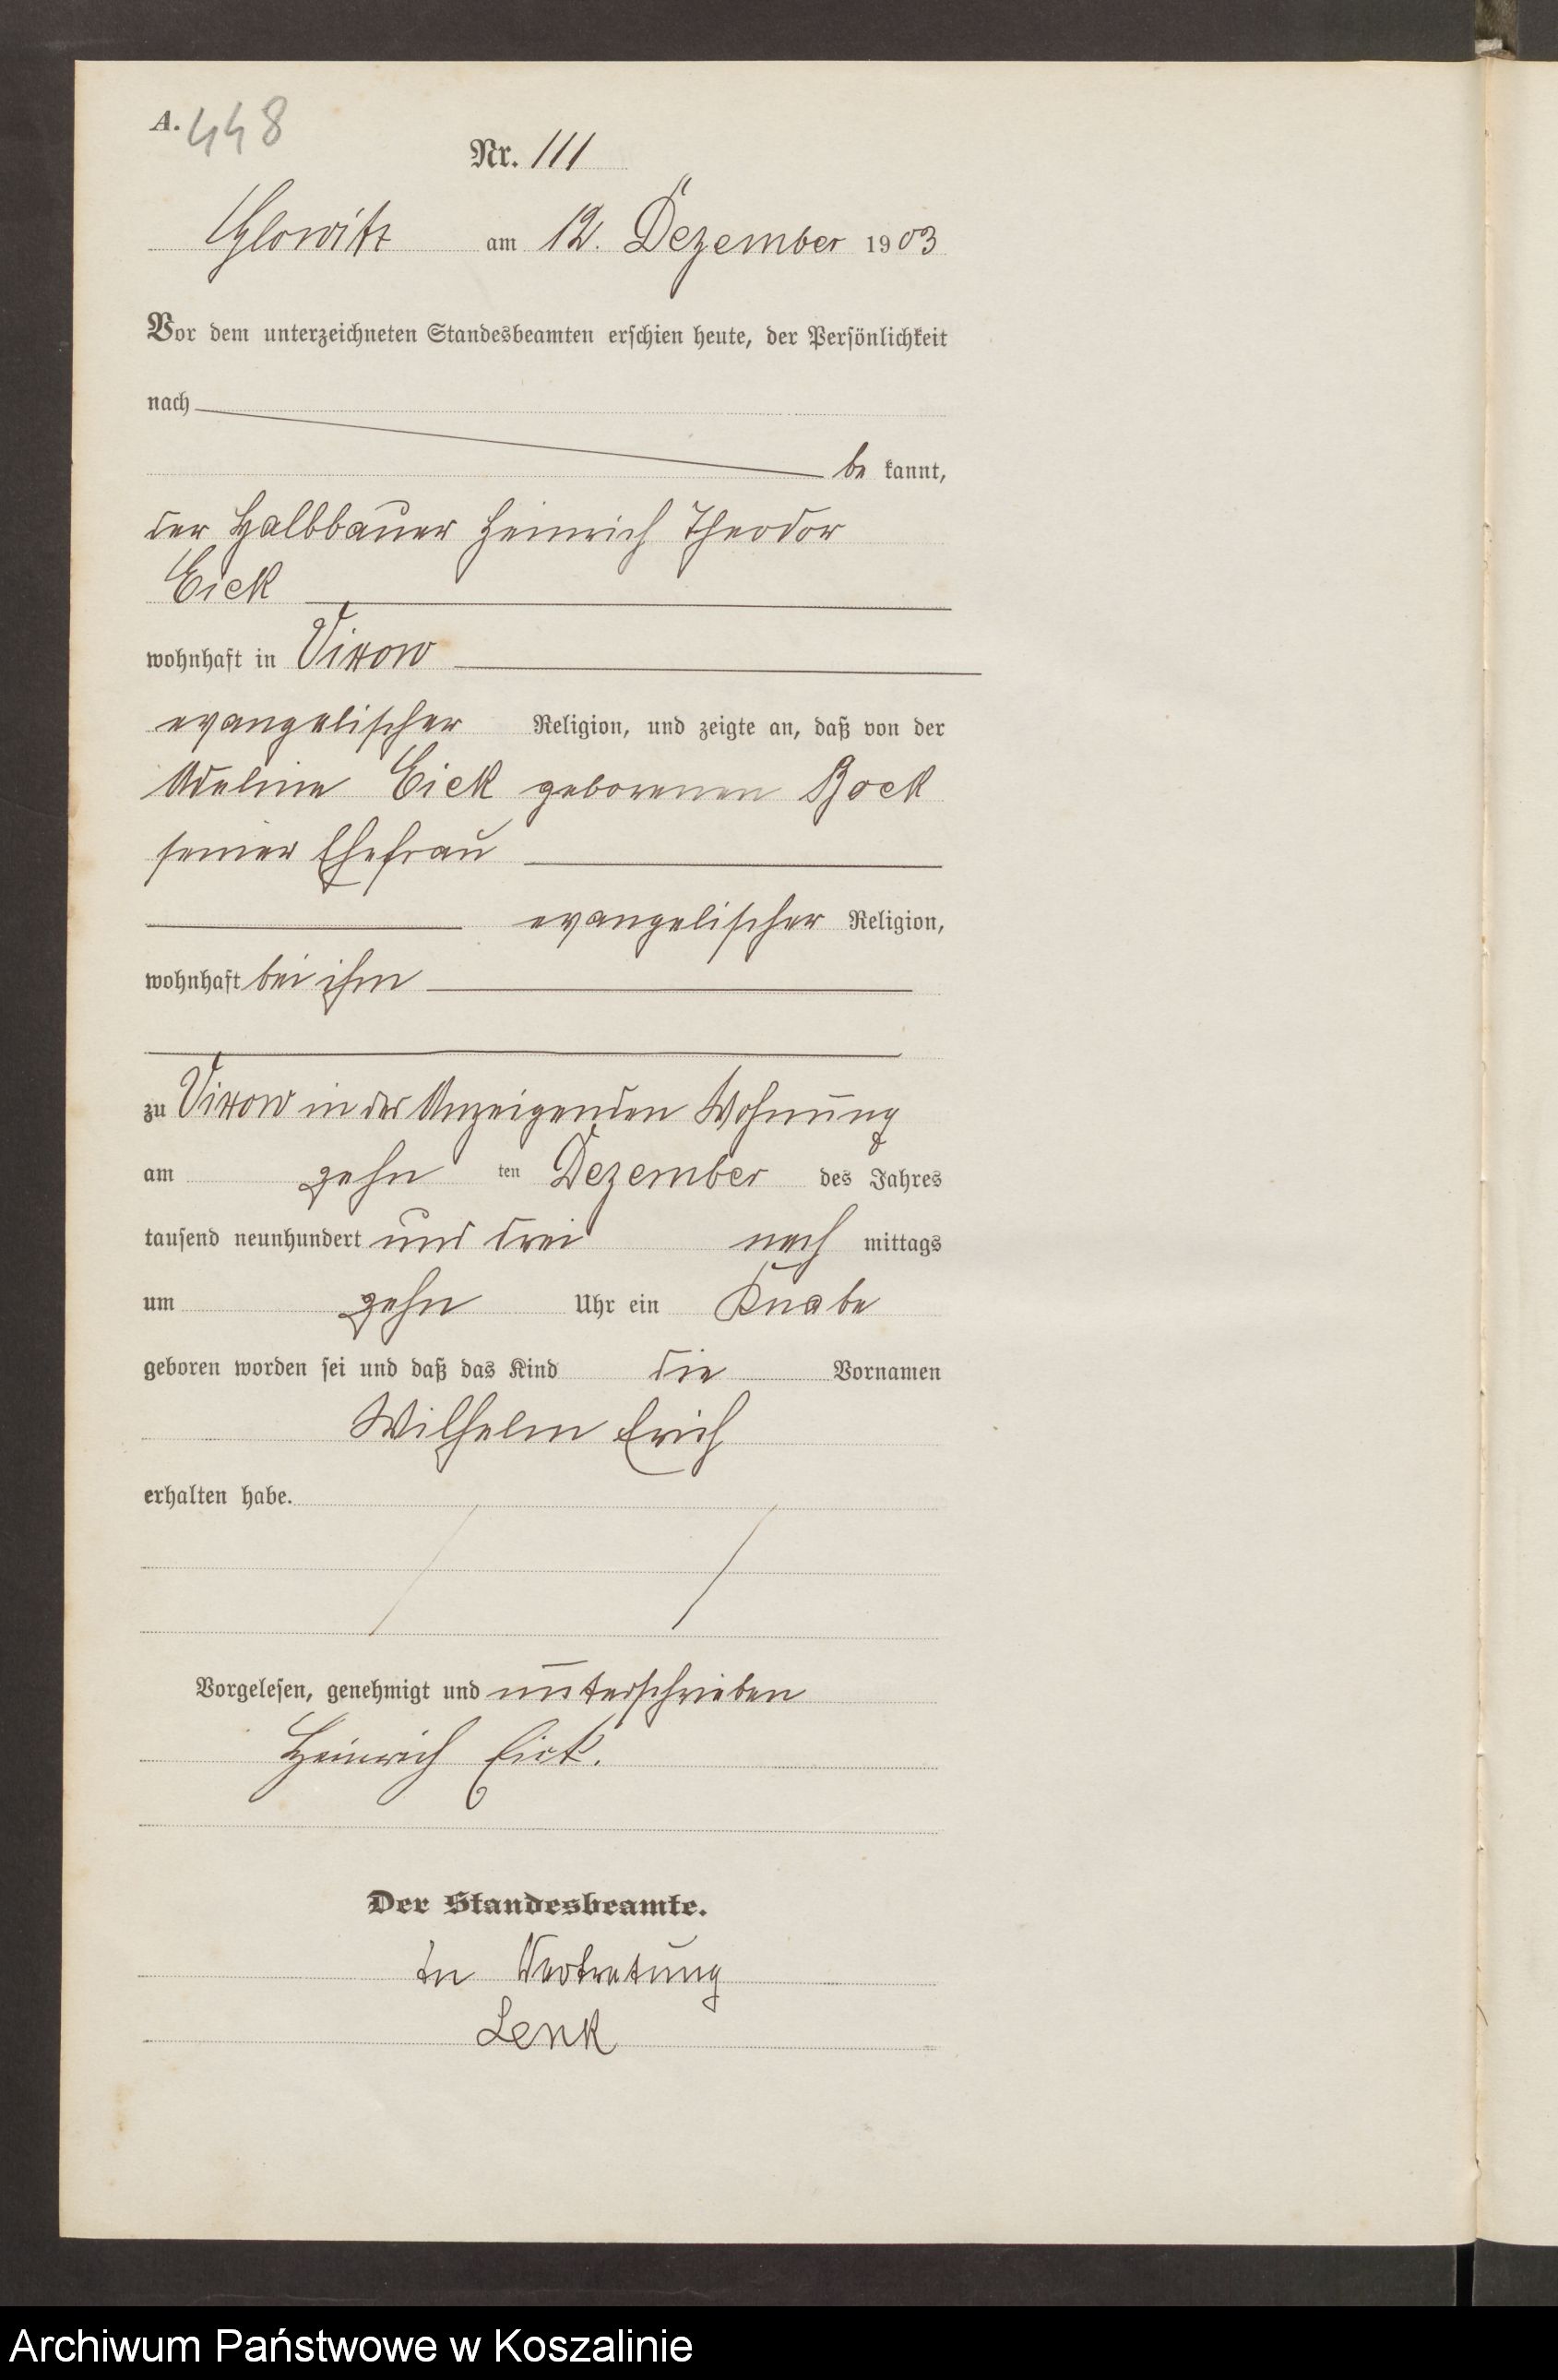 A. 448
Nr. 111
Glowitz am 12. Dezember 1903
Vor dem unterzeichneten Standesbeamten erschien heute, der Persönlichkeit
nach
be kannt,
der Halbbauer Heinrich Theodor
Eick
wohnhaft in Vixow
evangelischer Religion, und zeigte an, daß von der
Adeline Eick geborenen Bock
seiner Ehefrau
evangelischer Religion,
wohnhaft bei ihm
zu Vixow in des Anzeigenden Wohnung
am zehn ten Dezember des Jahres
tausend neunhundert und drei nach mittags
um zehn Uhr ein Knabe
geboren worden sei und daß das Kind die Vornamen
Wilhelm Erich
erhalten habe.
Vorgelesen, genehmigt und unterschrieben
Heinrich Eick.
Der Standesbeamte.
In Vertretung
Lenk
Archiwum Państwowe w Koszalinie